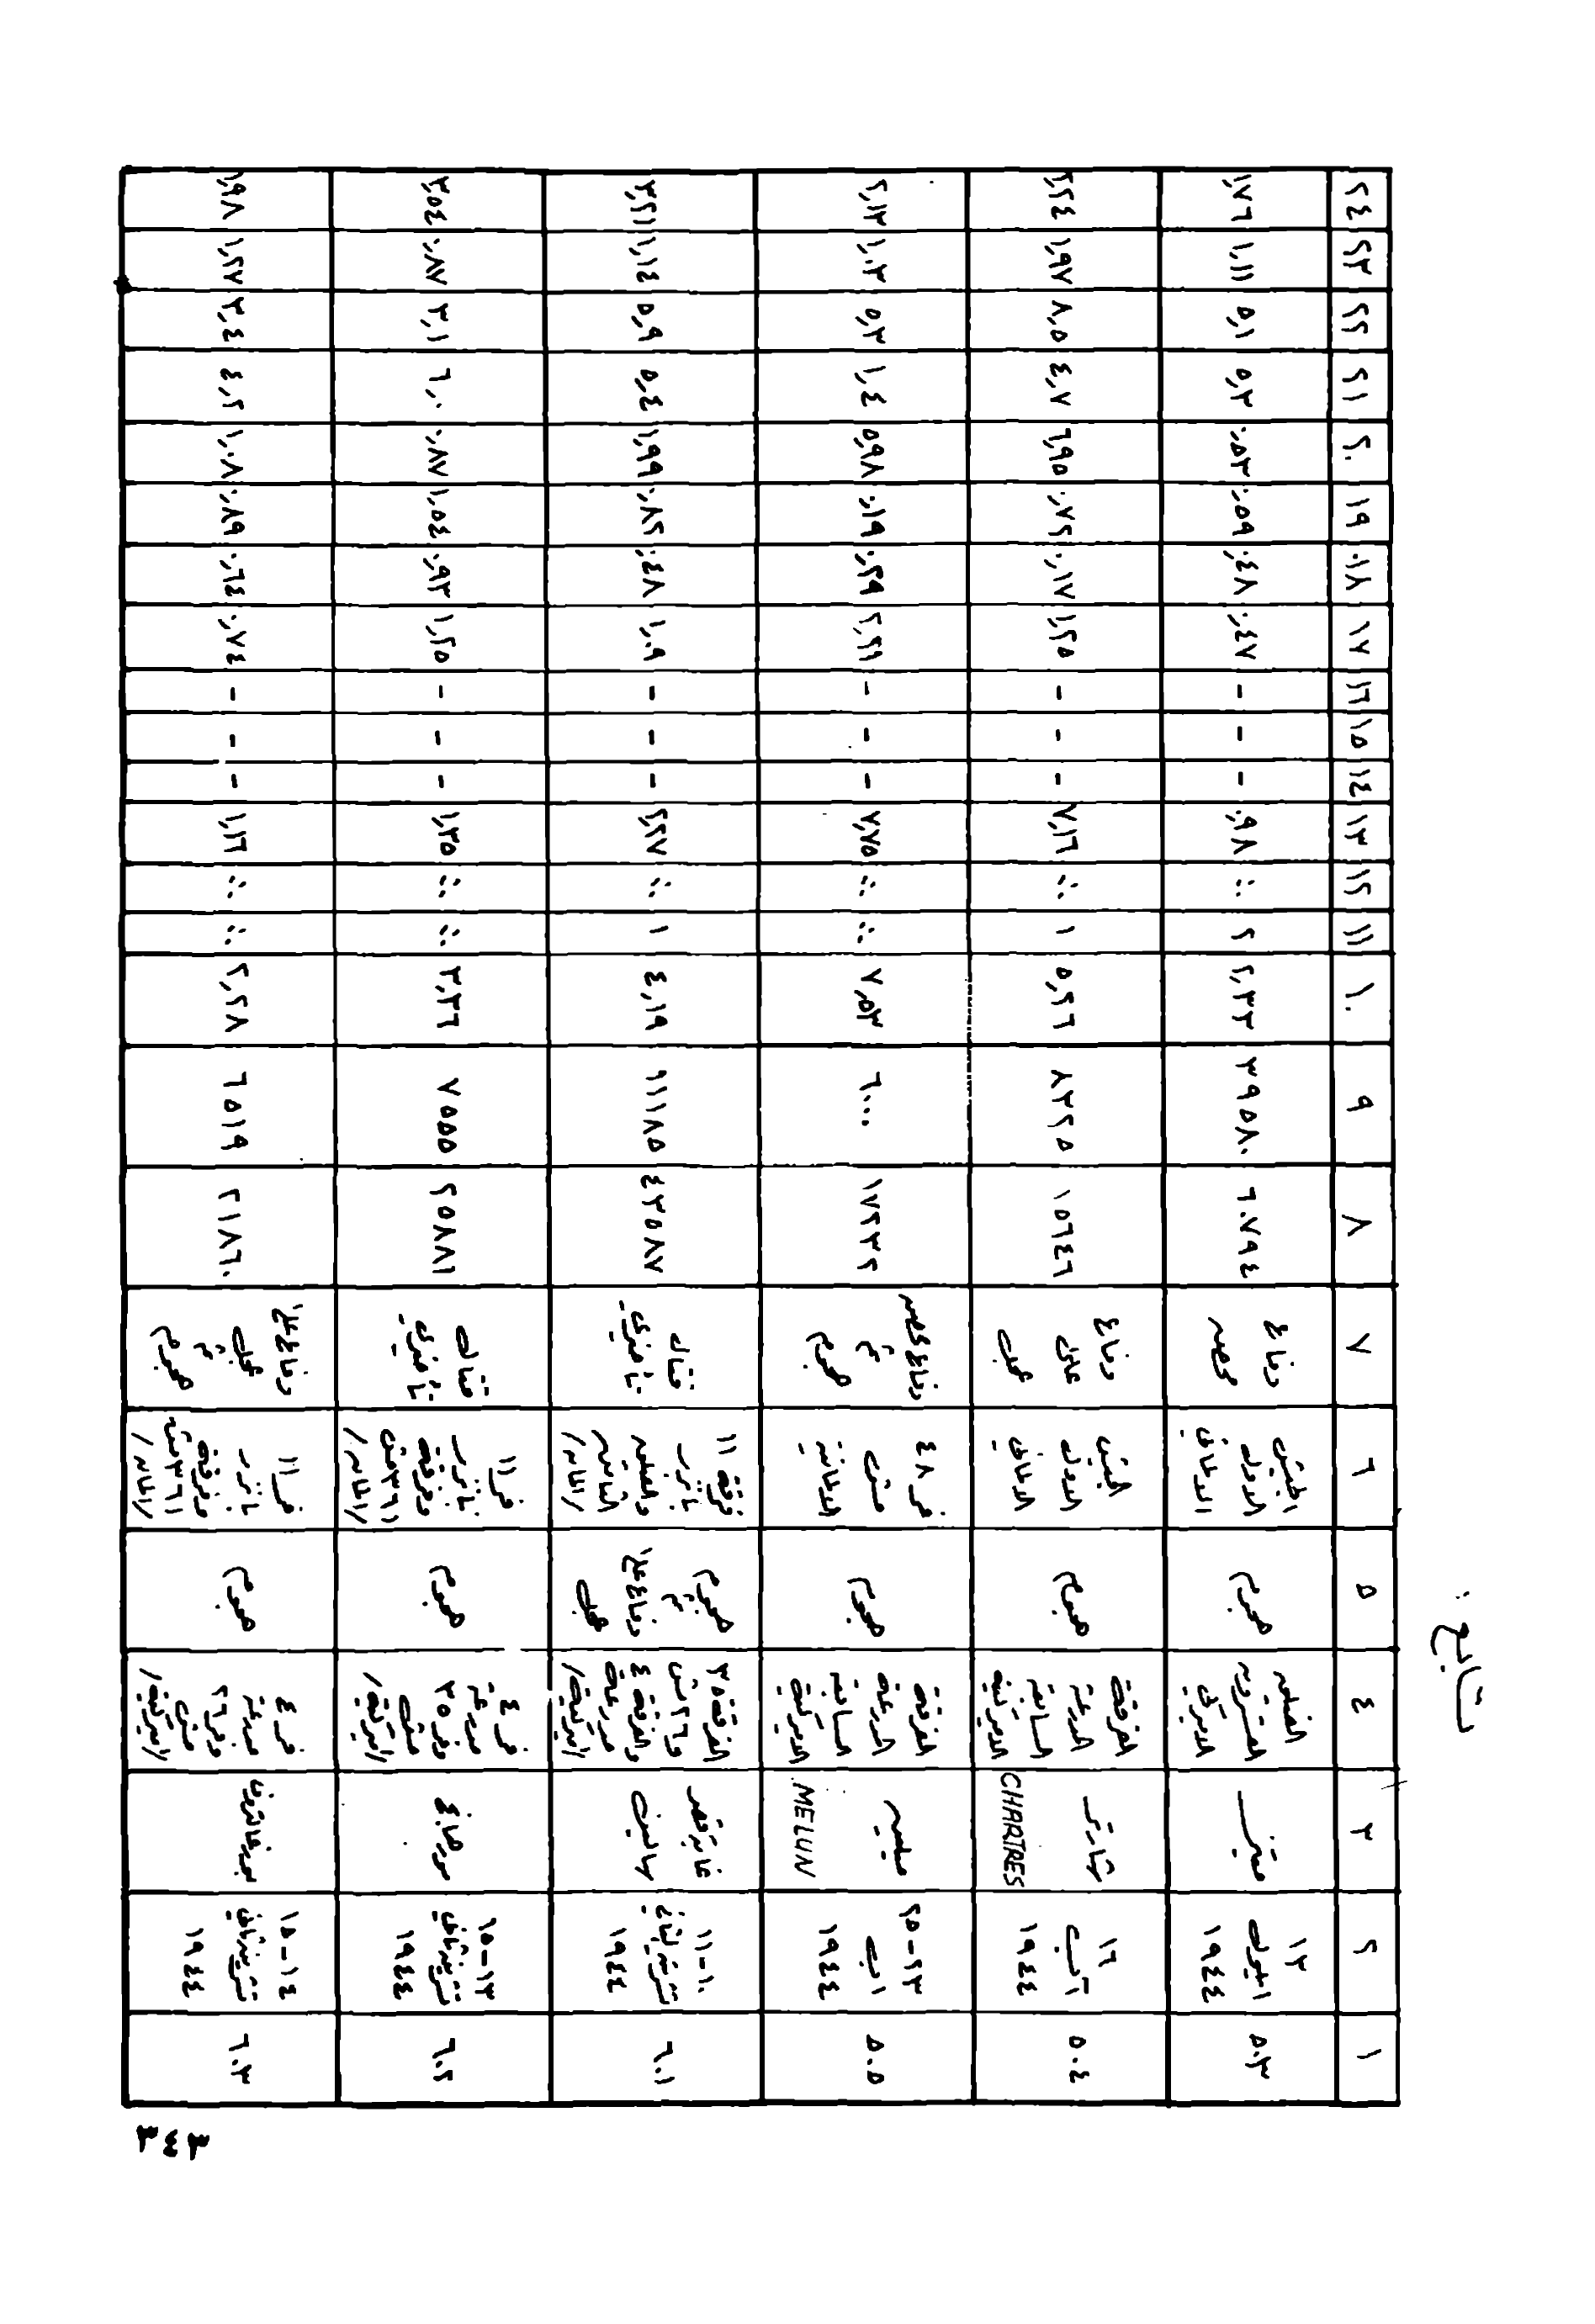 تابع :
١ ٢ ٣ ٤ ٥ ٦ ٧ ٨ ٩ ١٠ ١١ ١٢ ١٣ ١٤ ١٥ ١٦ ١٧ ١٨ ١٩ ٢٠ ٢١ ٢٢ ٢٣ ٢٤
٥٠٣
١٣
ايلول
١٩٤٤
متز
الفيلق
العشرون
الامريكي
هجوم
الجيش
الاول
الالماني
دفاع
محصن
٦٠٧٩٤ ٣٩٥٨٠ ٢,٣٣ ٢ ∴ ٠,٩٨ - - - ٠,٤٧ ٠,٤٨ ٠,٥٩ ٠,٥٣ ٥,٣ ٥,١ ١,١١ ١,٧٦
٥٠٤
١٦
آب
١٩٤٤
شارتر
CHARTRES
الفرقة
المدرعة
السابعة
الامريكية
هجوم
الجيش
الاول
الالماني
دفاع
على
عجل
١٥٦٤٦ ٨٣٢٥ ٥,٢٦ ١ ∴ ٧,١٦ - - - ١,٢٥ ٠,١٧ ٠,٧٢ ٦,٩٥ ٤,٧ ٨,٥ ١,٩٧ ٢,٢٤
٥٠٥
٢٣-٢٥
اب
١٩٤٤
ميلين
MELUN
الفرقة
المدرعة
السابعة
الامريكية
هجوم
ف ٤٨
مش
الالمانية
دفاع محصن
ثم
هجوم
١٧٢٣٢ ٦٠٠٠ ٧,٥٣ ∴ ∴ ٧,٧٥ - - - ٢,٢٩ ٠,٢٩ ٠,١٩ ٥,٩٨ ١,٤ ٥,٣ ١,٠٣ ٢,١٣
٦٠١
١٠-١١
تشرين الثاني
١٩٤٤
غابة قصر
سالين
الفرقة ٣٥
و ٢٦ مش
والفرقة ٤
مدرعة
/امريكية/
هجوم
ثم
دفاع على
عجل
فرقة ١١
بانزر
/المانيا/
قتال
تأخيري
٤٣٥٨٧ ١١١٨٥ ٤,١٩ ١ ∴ ٢,٢٧ - - - ١,٠٩ ٠,٤٨ ٠,٨٢ ١,٩٩ ٥,٤ ٥,٩ ١,١٤ ٣,٢١
٦٠٢
١٣-١٥
تشرين ثاني
١٩٤٤
مورهانغ
ف ٤
مدرعة
وف ٣٥
مش
/امريكية/
هجوم
ف ١١
بانزر
وفرقة
٣٦١ مش
/المانيا/
قتال
تأخيري
٢٥٨٨١ ٧٥٥٥ ٣,٣٦ ∴ ∴ ١,٣٥ - - - ١,٢٥ ٠,٩٣ ١,٥٤ ٠,٨٧ ٦,٠ ٣,١ ٠,٨٧ ٣,٥٤
٦٠٣
١٤-١٥
تشرين ثاني
١٩٤٤
ف ٤
مدرعة
وف ٢٦
مش
/امريكية/
هجوم
ف ١١
بانزر
وفرقة
٣٦١ مش
/المانيا/
دفاع على
عجل
ثم
هجوم
٢١٨٦٠ ٦٥١٩ ٢,٢٨ ∴ ∴ ١,١٦ - - - ٠,٧٤ ٠,٦٤ ٠,٨٩ ١,٠٨ ٤,٢ ٣,٤ ١,٢٧ ١,٩٨
٣٤٣